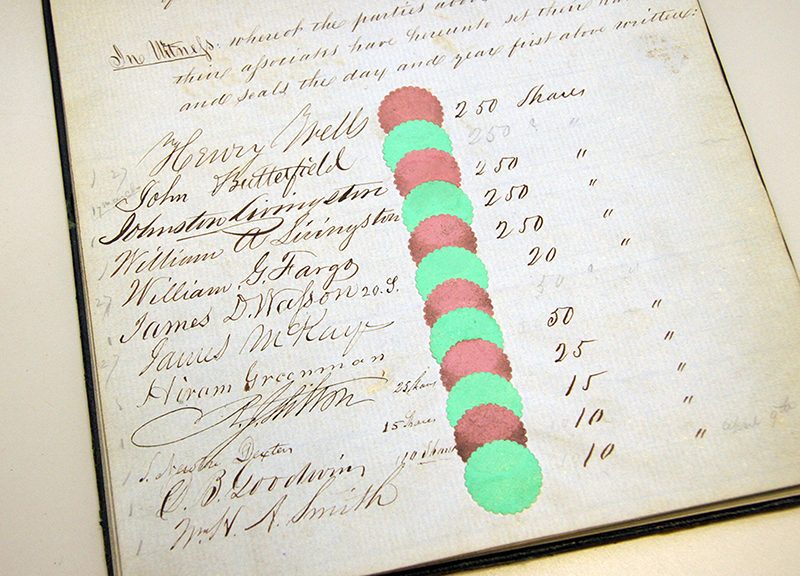 In Witness: whereof the parties above
their associates have hereunto set their
and seals the day and year first above written:
Henry Wells 250 Shares
John Butterfield 250 "
Johnston Livingston 250 "
William A Livingston 250 "
William G. Fargo 250 "
James D. Wasson 20. S. 20 "
James McKaye 50
Hiram Greenman 50 "
25 Shares 25 "
Dexter 15 Shares 15 "
C. B. Goodwin 10 Shares 10 "
Wm. H. A. Smith 10 "